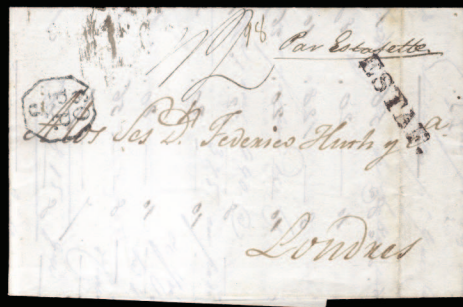 98
Par Estafette
ESTAF.
A los Ses Dn. Federico Huth y Ca.
Londres